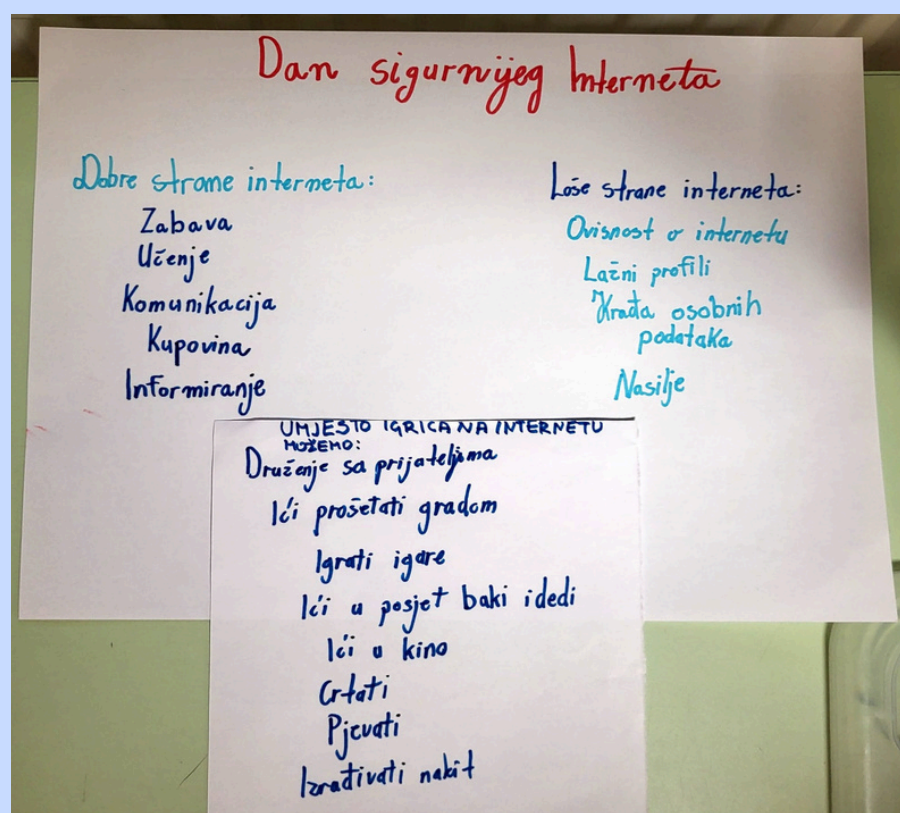 Dan sigurnijeg Interneta
Dobre strane interneta:
Zabava
Učenje
Komunikacija
Kupovina
Informiranje
Loše strane interneta:
Ovisnost o internetu
Lažni profili
Krađa osobnih
podataka
Nasilje
UMJESTO IGRICA NA INTERNETU
MOŽEMO:
Druženje sa prijateljima
Ići prošetati gradom
Igrati igare
Ići u posjet baki i dedi
Ići u kino
Crtati
Pjevati
Izrađivati nakit